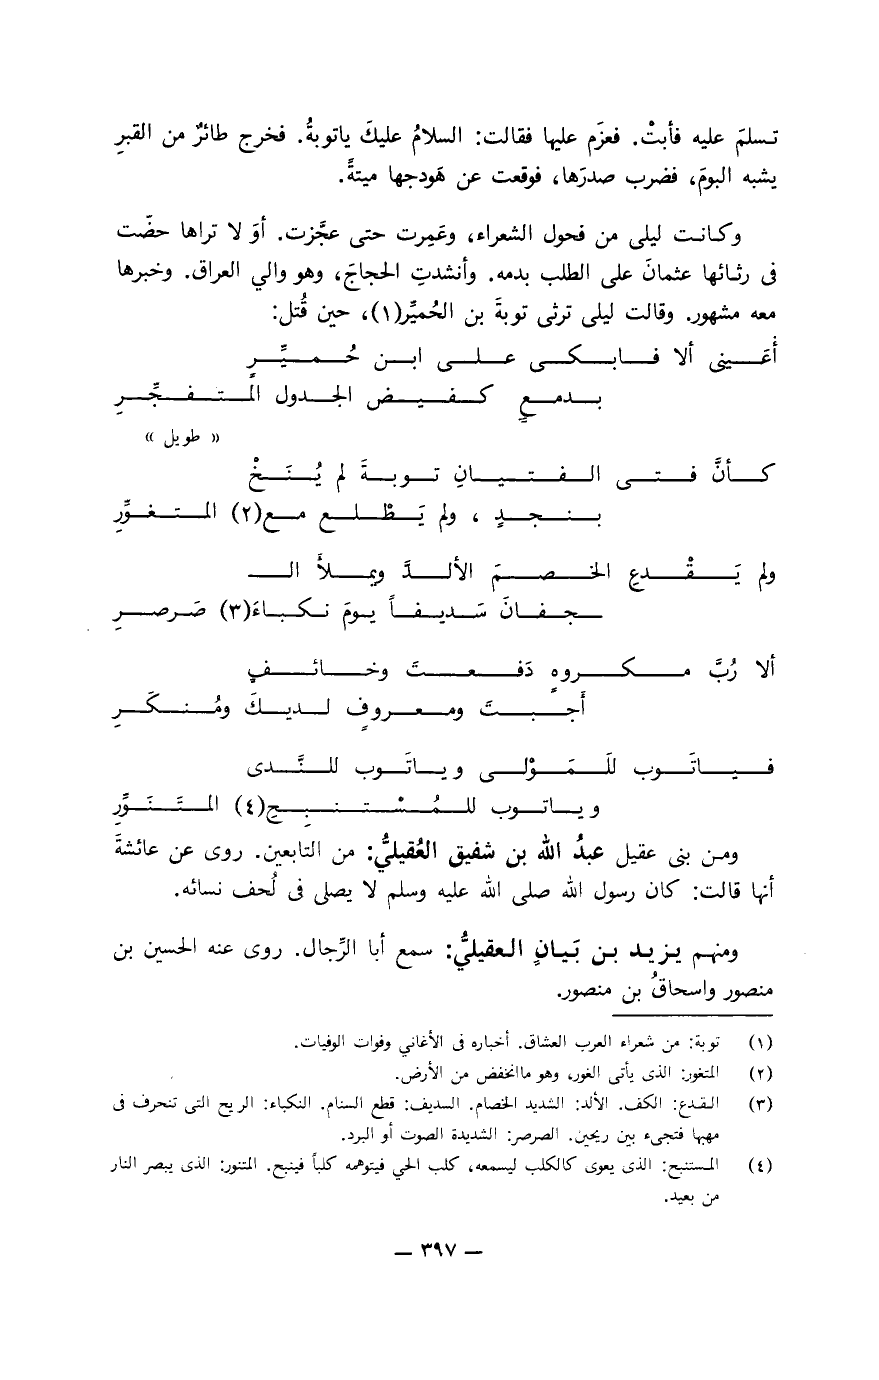 تسلمَ عليه فأبتْ. فعزَم عليها فقالت: السلامُ عليكَ ياتوبةُ. فخرج طائرٌ من القبرِ
يشبه البومَ، فضرب صدرَها، فوقعت عن هَودجها ميتةً.
وكانت ليلى من فحول الشعراء، وعَمِرت حتى عجَّزت. أوَ لا تراها حضّت
فى رثائها عثمانَ على الطلب بدمه. وأنشدتِ الحجاجَ، وهو والي العراق. وخبرها
معه مشهور. وقالت ليلى ترثى توبةَ بن الحُميِّر(١)، حين قُتل:
أَعَينى ألا فابكى على ابن حُميِّرٍ
بدمعٍ كفيض الجدول المتفجِّرِ
« طويل »
كأنَّ فتى الفتيانِ توبةَ لم يُنَخْ
بنجدٍ ، ولم يَطْلع مع(٢) المتغوِّرِ
ولم يَقْدعِ الخصمَ الألدَّ ويملأ الـ
ـجفانَ سَديفاً يومَ نكباءَ(٣) صَرصرِ
ألا رُبَّ مكروهٍ دَفعتَ وخائفٍ
أَجبتَ ومعروفٍ لديكَ ومُنكَرِ
فياتَوب للَمَوْلى وياتَوب للنَّدى
وياتوب للمُسْتنبِحِ(٤) المتَنَوِّرِ
ومن بنى عقيل عبدُ الله بن شفيق العُقيليُّ: من التابعين. روى عن عائشةَ
أنها قالت: كان رسول الله صلى الله عليه وسلم لا يصلى فى لُحف نسائه.
ومنهم يزيد بن بَيانٍ العقيليُّ: سمع أبا الرِّجال. روى عنه الحسين بن
منصور واسحاقُ بن منصور.
(١) توبة: من شعراء العرب العشاق. أخباره فى الأغاني وفوات الوفيات.
(٢) المتغور: الذى يأتى الغور، وهو ماانخفض من الأرض.
(٣) القدع: الكف. الألد: الشديد الخصام. السديف: قطع السنام. النكباء: الريح التى تنحرف فى
مهبها فتجىء بين ريحين. الصرصر: الشديدة الصوت أو البرد.
(٤) المستنبح: الذى يعوى كالكلب ليسمعه، كلب الحي فيتوهمه كلباً فينبح. المتنور: الذى يبصر النار
من بعيد.
— ٣٩٧ —